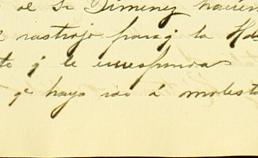 de Sr Dimenez hacien
rastrojo para q la Hda
te q le corresponda
q haya ido á molest